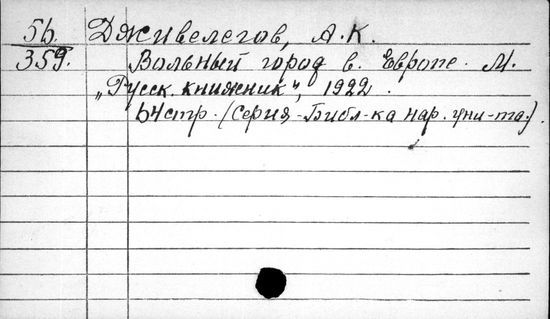 5б. Дживелегов, А.К.
359. Вольный город в Европе. М.
„Русск. книжник", 1922.
64стр. (Серия-Библ-ка нар. уни-та.)